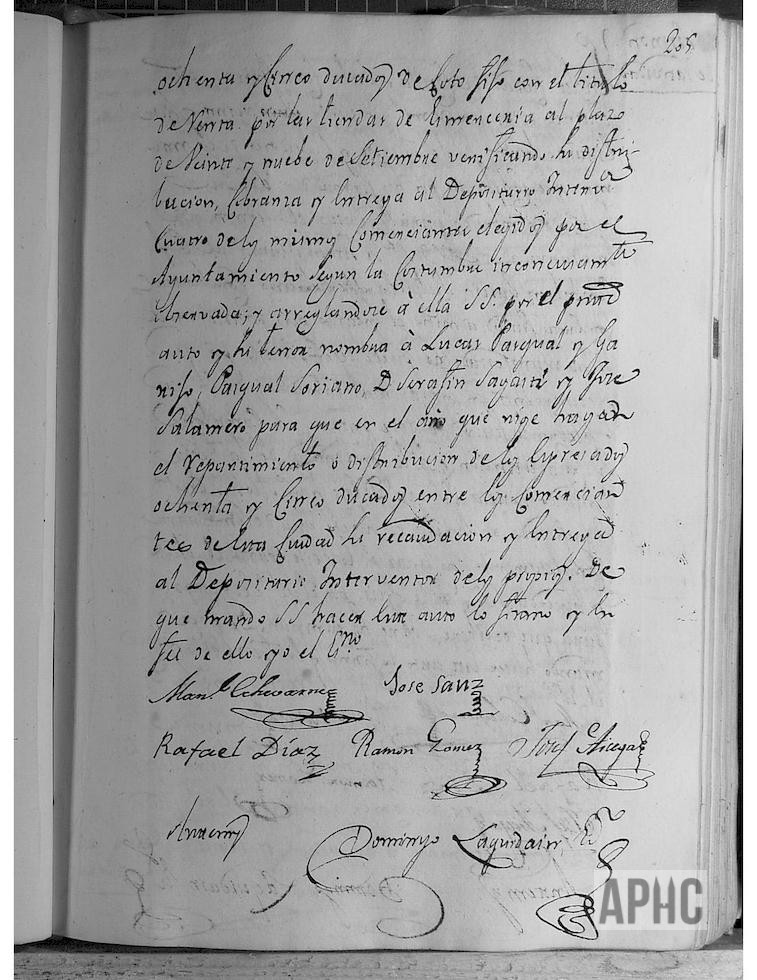 205
ochenta y Cinco ducados de Coto fijo con el titulo
de Venta por las tiendas de Emrencenia al plazo
de Veinte y nuebe de Setiembre verificando su distri-
bucion, Cobranza y Entrega al Depositario Interv.or
Cuatro delos mismos Comerciantes elegidos por el
Ayuntamiento segun la Costumbre inconcusam.te
observada; y arreglandose à ella SS. por el pres.te
auto y su tenor nombra à Lucas Pasqual y Ga
niso, Pasqual Soriano, D Serafin Sagasti y Jose
Salamero para que en el año que rige hagan
el repartimiento ò distribucion delos Expresados
ochenta y Cinco ducados entre los Comercian
tes de esta Ciudad su recaudacion y Entrega
al Depositario Interventor delos propios. De
que mando SS hacer este auto lo firmo y en
fee de ello yo el Es.no
Man.l Echevarne
Jose Sanz
Rafael Díaz Ramon Gomez Josef Aicega
Antemi
Domingo Laguidain, Es.no
APHC